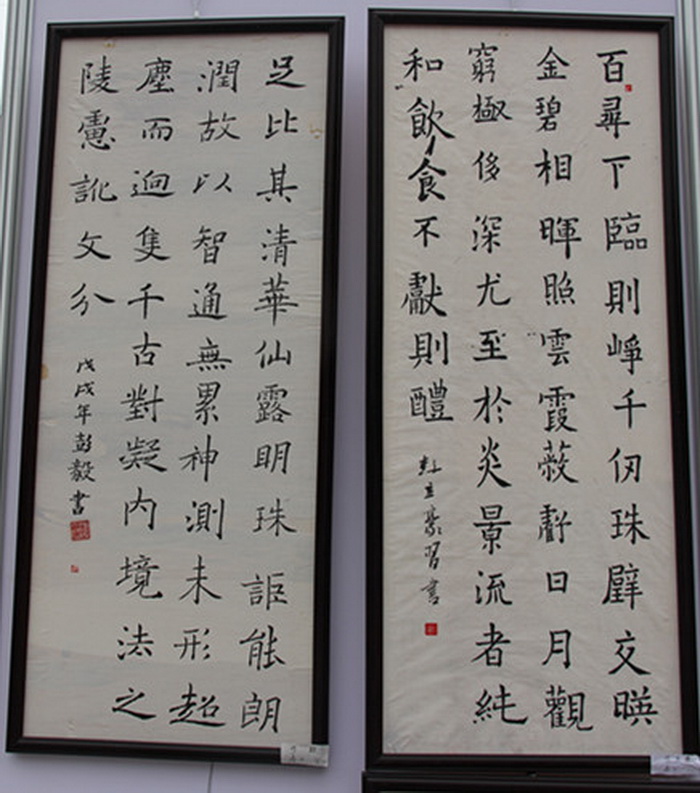 百尋下臨則崢千仞珠璧交暎
金碧相暉照雲霞蔽虧日月觀
窮極侈深尤至於炎景流者純
和飲食不獻則醴
彭立豪習書
足比其清華仙露明珠詎能朗
潤故以智通無累神測未形超
塵而迥隻千古對凝内境法之
陵慮訛文分
戊戌年彭毅書